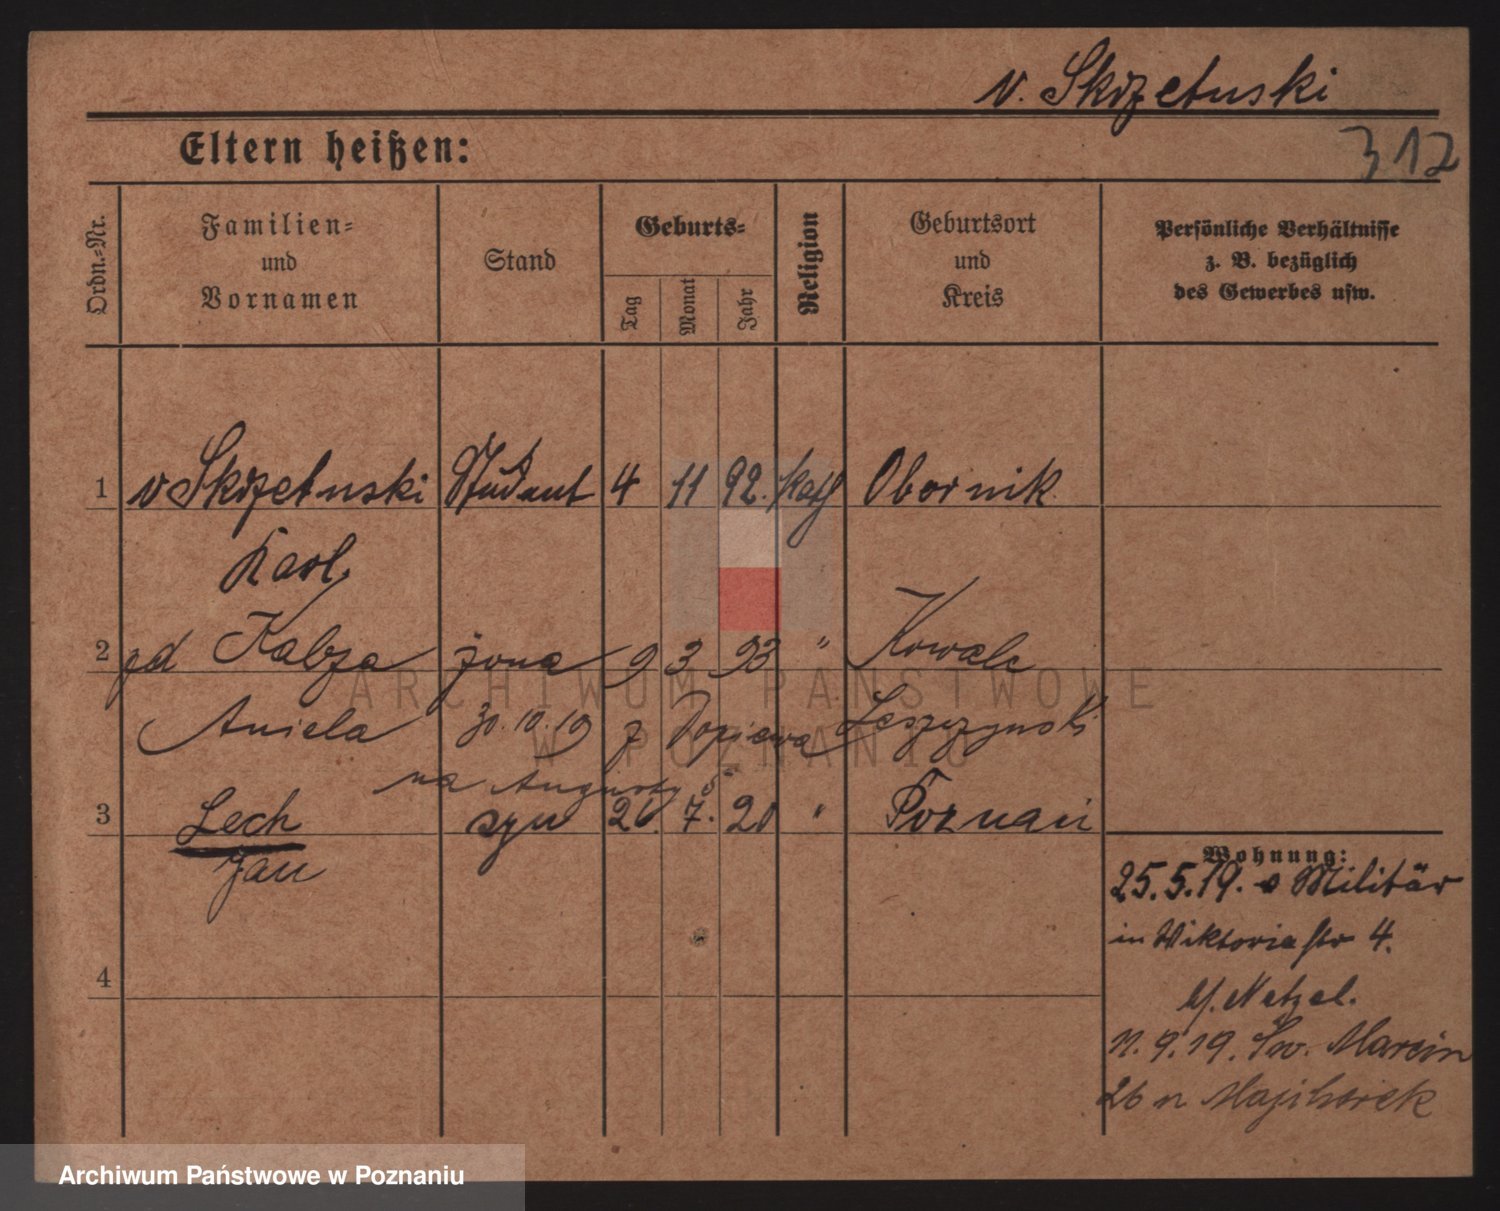 v. Skrzetuski
Eltern heißen:
312
Ordn.-Nr.
Familien-
und
Vornamen
Stand
Geburts-
Tag
Monat
Jahr
Religion
Geburtsort
und
Kreis
Persönliche Verhältnisse
z. B. bezüglich
des Gewerbes usw.
1 v Skrzetuski Student 4 11 92. kath Obornik
Karl.
2 Kabza żona 9 3 93 " Kowale
Aniela 30.10.19 z Dopiewa Leszczynski
na Augusty 5
3 Lech syn 20. 7. 20 " Poznań
Jan
4
Wohnung:
25.5.19. Militär
in Wiktoriastr 4.
b/. Netzel.
11.9.19. Św. Marcin
26 n
ARCHIWUM PAŃSTWOWE
W POZNANIU
Archiwum Państwowe w Poznaniu